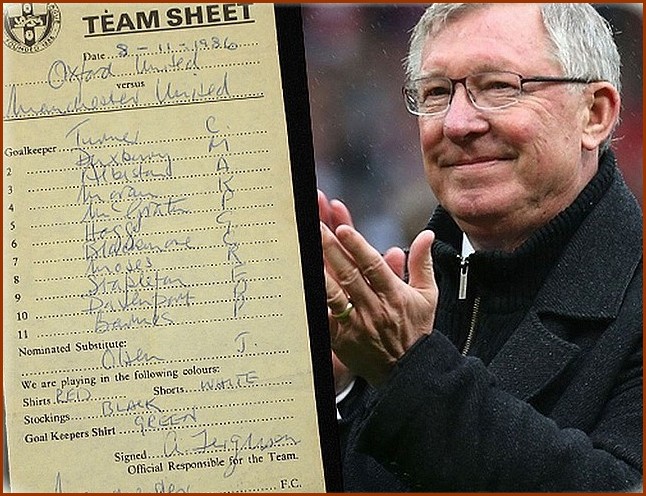 TEAM SHEET
Date 8-11-1986
Oxford United
versus
Manchester United
Goalkeeper Turner C.
2 Duxbury M
3 Albiston A
4 Moran K
5 McGrath P
6 Hogg G
7 Blackmore C
8 Moses R
9 Stapleton F
10 Davenport P
11 Barnes P
Nominated Substitute:
Olsen J.
We are playing in the following colours:
Shirts RED Shorts WHITE
Stockings BLACK
Goal Keepers Shirt GREEN
Signed A Ferguson
Official Responsible for the Team.
F.C.